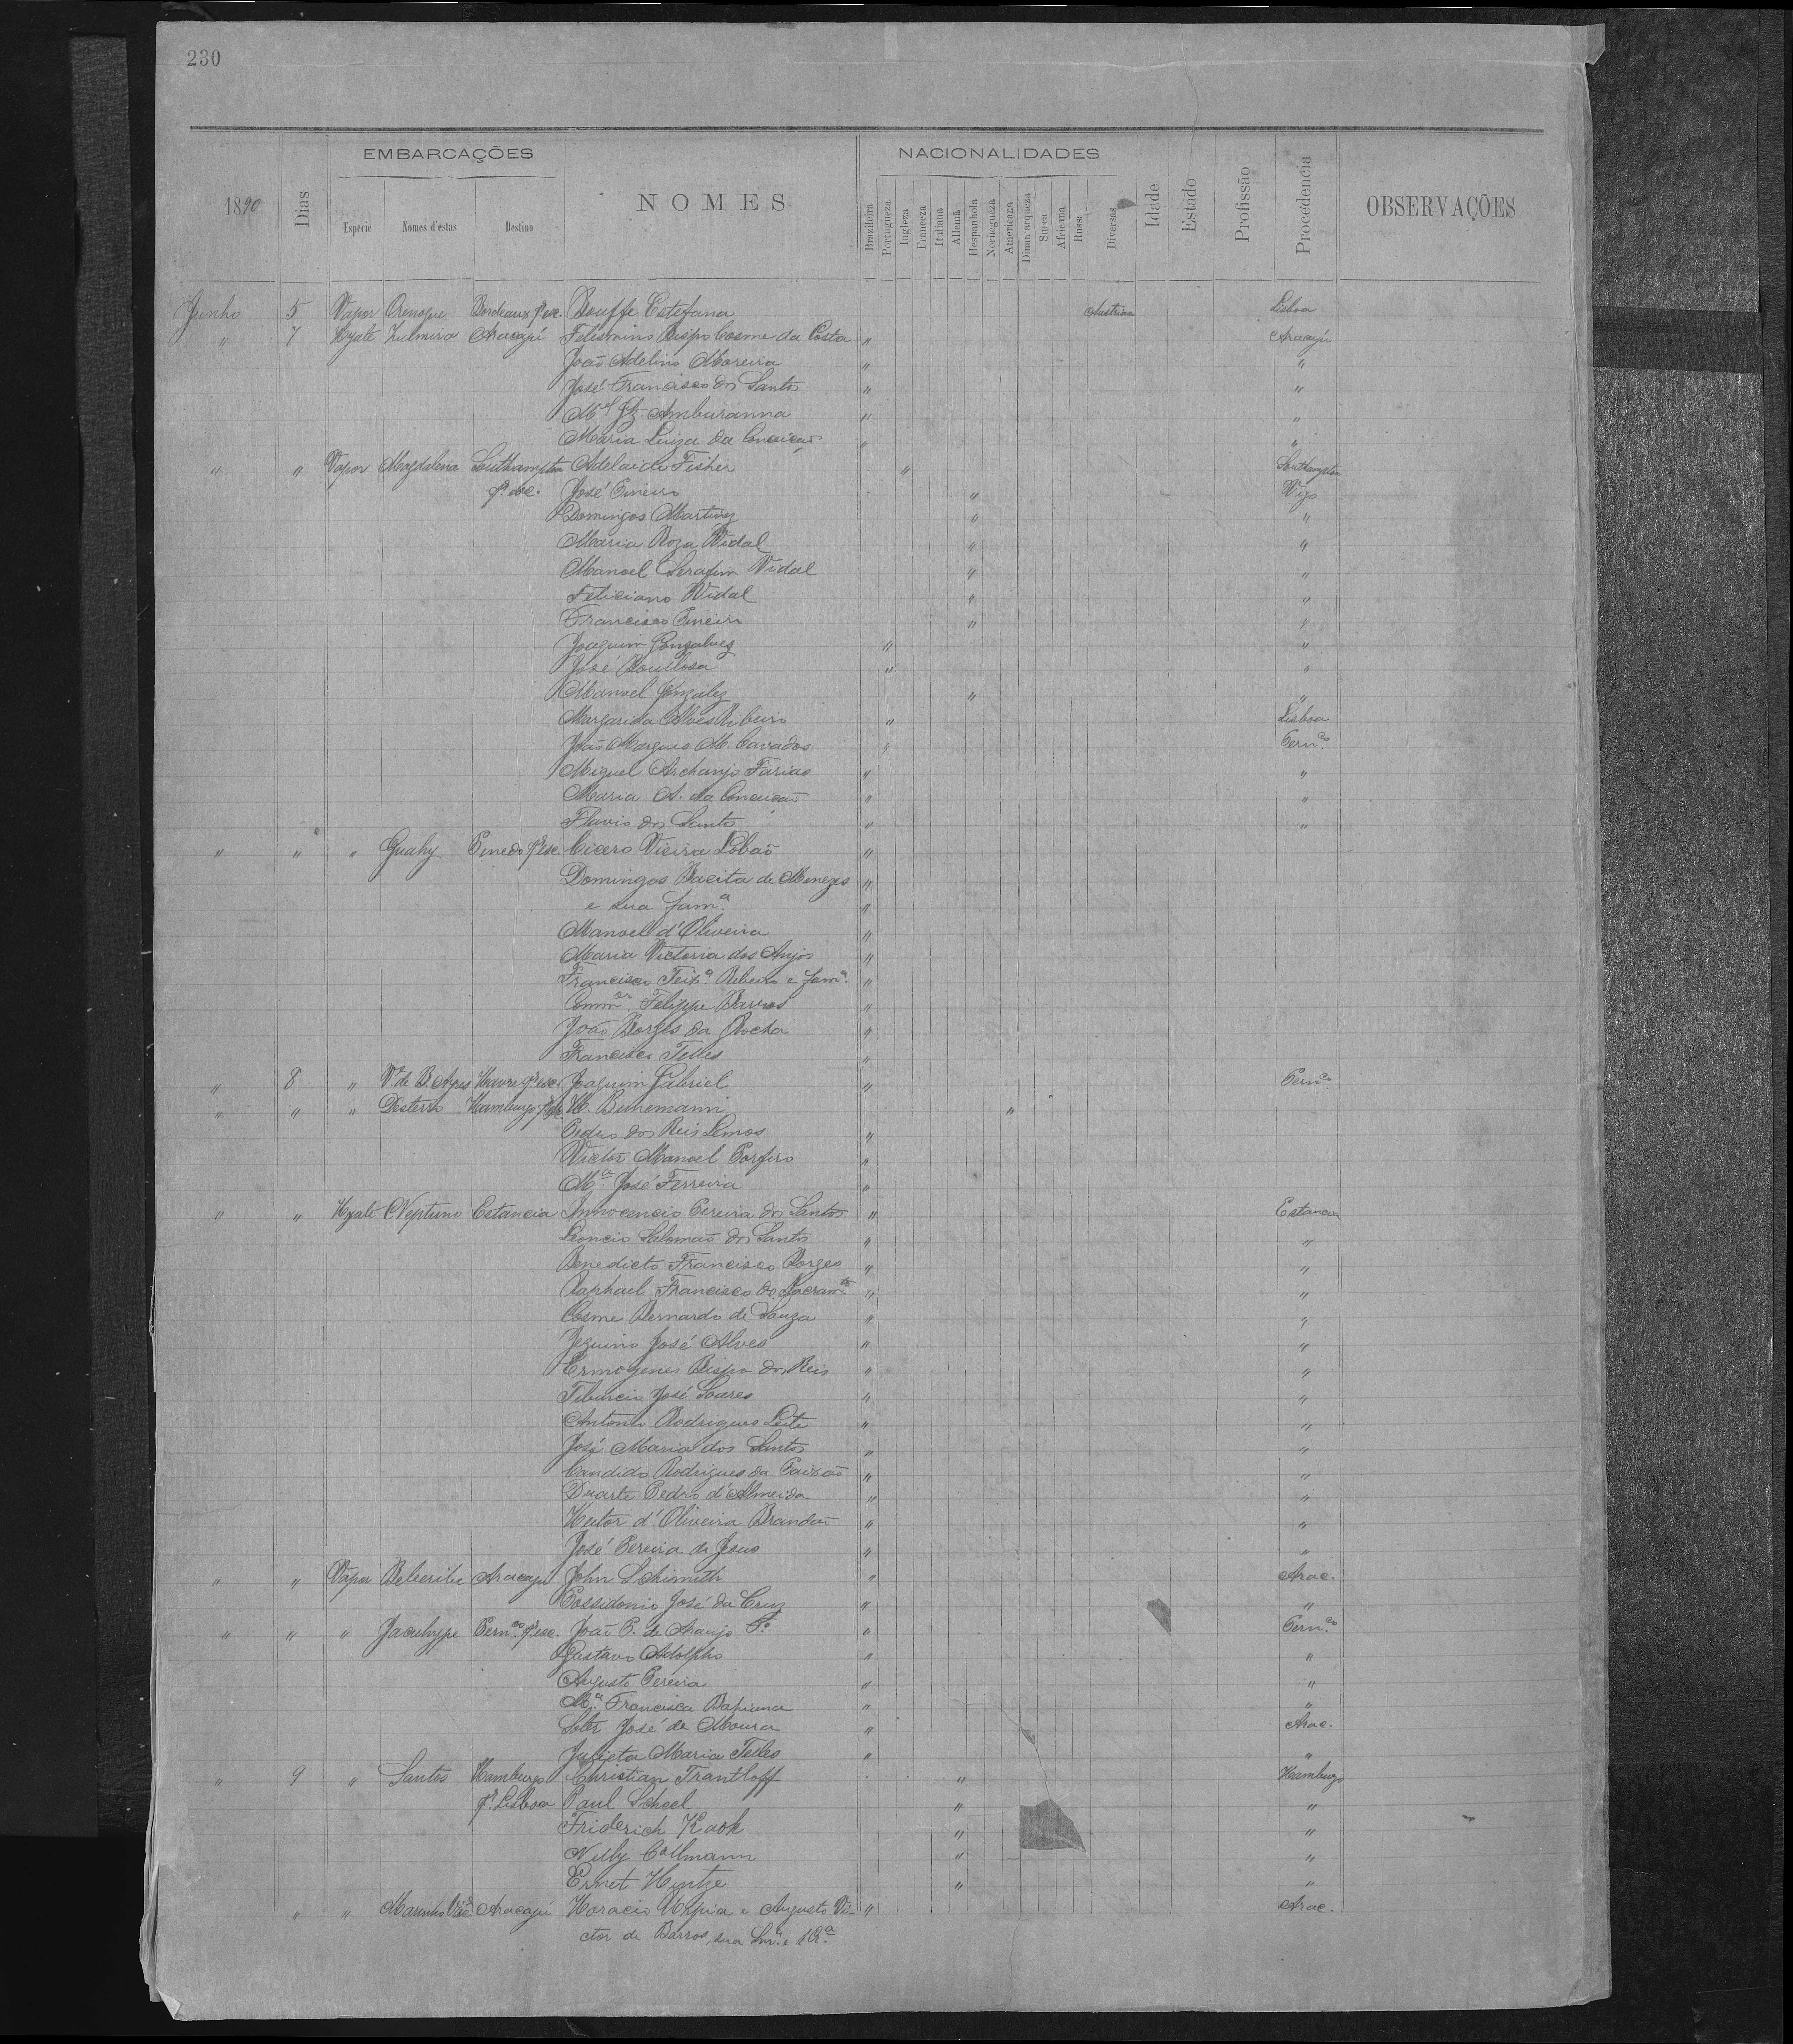 230
EMBARCAÇÕES
NACIONALIDADES
1890 Dias Especie Nomes d'estas Destino NOMES Brazileira Portugueza Ingleza Franceza Italiana Allemã Hespanhola Norueguеza Americana Dinamarqueza Sueca Africana Russa Diversas Idade Estado Profissão Procedencia OBSERVAÇÕES
Junho 5 Vapor Orenoque Bordeaux p. esc. Bouffe Estefana Austriaca Lisboa
" 7 Hyate Zulmira Aracajú Felismino Bispo Cosme da Costa " Aracajú
João Adelino Moreira " "
José Francisco dos Santos " "
M.el Fz. Amburanna " "
Maria Luiza da Conceição " "
" " Vapor Magdalena Southampton Adelaide Fisher " Southampton
p. esc. José Pineiro " Vigo
Domingos Martinez " "
Maria Roza Vidal " "
Manoel Serafim Vidal " "
Feliciano Vidal " "
Francisco Pineiro " "
Joaquim Gonzalvez " "
José Boullosa " "
Manoel Gonzalez " "
Margarida Alves Ribeiro " Lisboa
João Marques M. Cavados " Pern.co
Miguel Archanjo Farias " "
Maria A. da Conceição " "
Flavio dos Santos " "
" " " Guahy Penedo p. esc. Cicero Vieira Lobão "
Domingos Bacita de Menezes "
e sua fam.a "
Manoel d'Oliveira "
Maria Victoria dos Anjos "
Francisco Teix.a Ribeiro e fam.a "
Comm.or Felippe Barros "
João Borges da Rocha "
Francisco Telles "
" 8 " V.a de B. Ayres Havre p. esc. Joaquim Gabriel " Pern.co
" " " Desterro Hamburgo p. esc. H. Bunemann "
Pedro dos Reis Lemos "
Victor Manoel Porfiro "
M.a José Ferreira "
" " Hyate Neptuno Estancia Innocencio Pereira dos Santos " Estancia
Leoncio Salomão dos Santos " "
Benedicto Francisco Borges " "
Raphael Francisco do Sacram.to " "
Cosme Bernardo de Souza " "
Jezuino José Alves " "
Ermogenes Bispo dos Reis " "
Tiburcio José Soares " "
Antonio Rodrigues Leite " "
José Maria dos Santos " "
Candido Rodrigues da Paixão " "
Duarte Pedro d'Almeida " "
Heitor d'Oliveira Brandão " "
José Pereira de Jesus " "
" " Vapor Beberibe Aracaju John Schimith " Arac.
Possidonio José da Cruz " "
" " " Jacuhype Pern.co p. esc. João P. de Araujo F.o " Pern.co
Gustavo Adolpho " "
Augusto Pereira " "
M.a Francisca Bapiana " "
Soter José de Moura " Arac.
Julieta Maria Telles " "
" 9 " Santos Hamburgo Christian Trantloff " Hamburgo
p. Lisboa Paul Scheel " "
Friderich Kask " "
Willy Collmann " "
Ernet Hintze " "
" " Marinho Vis.e Aracajú Horacio Ulpia e Augusto Vi- " Arac.
ctor de Barros, sua Snr.a e